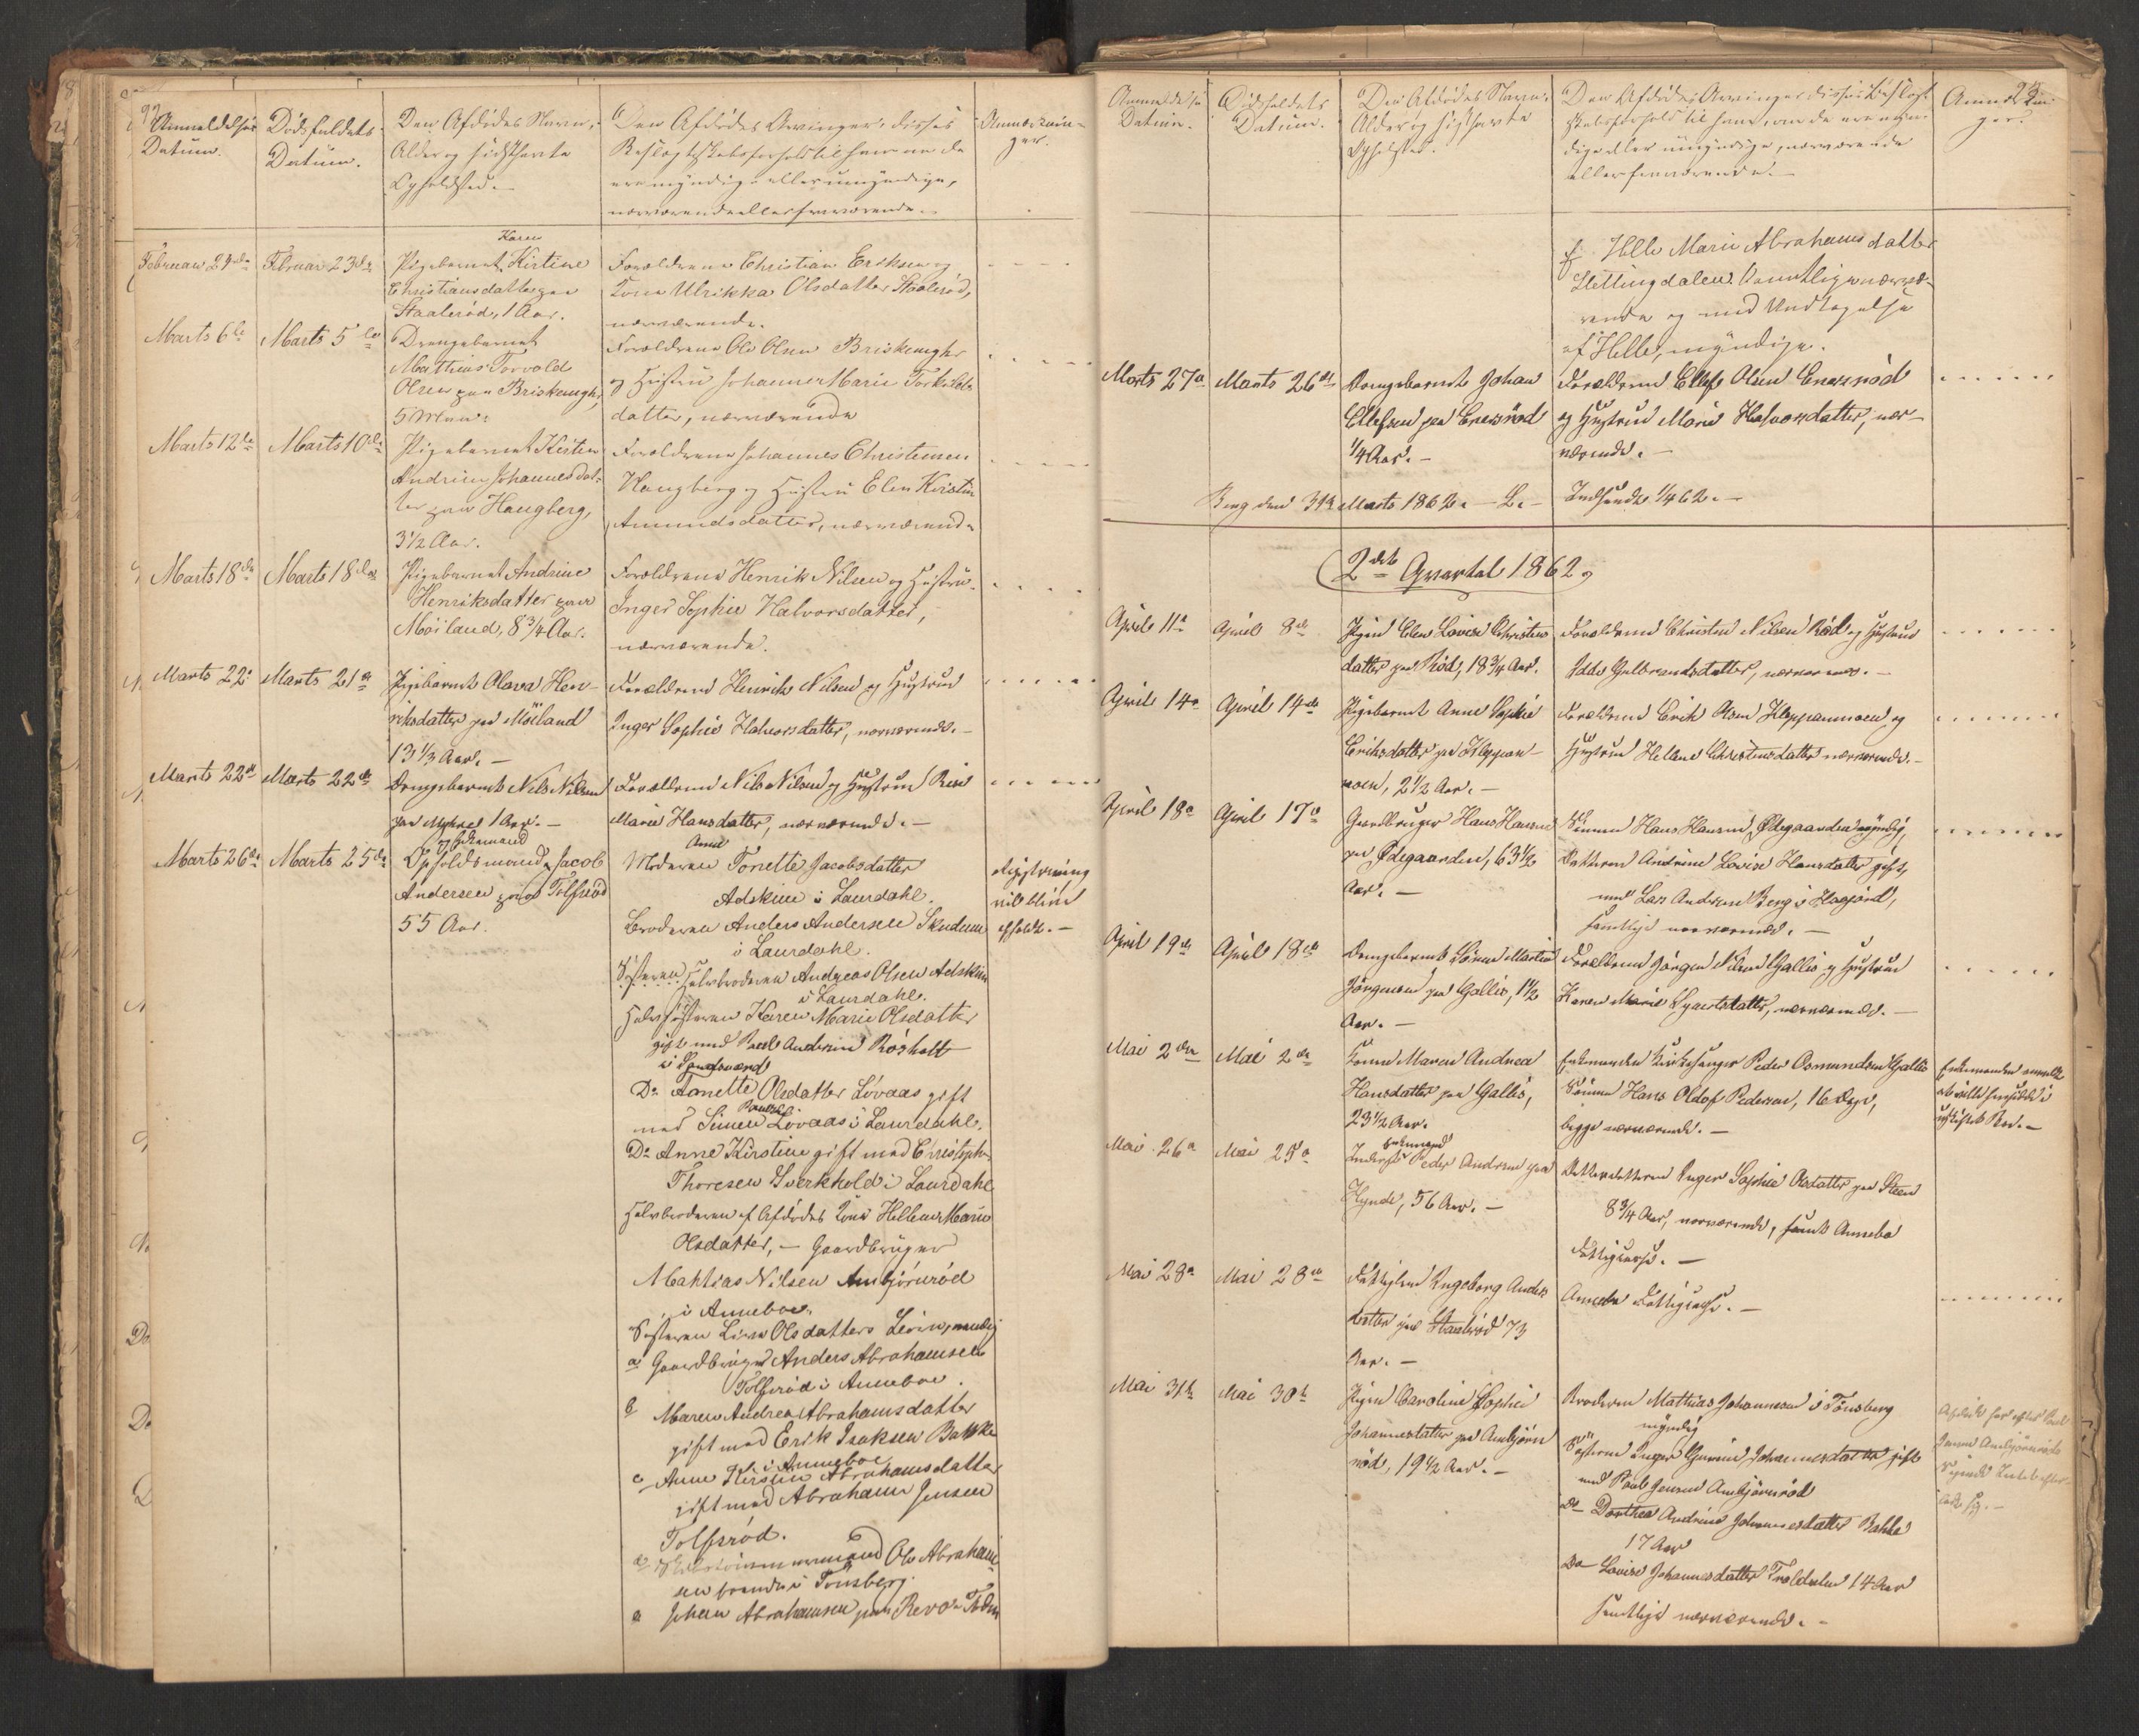 Anmeldelses
Datum.
Dödsfaldets
Datum.
Den Afdödes Navn,
Alder og sidsthavte
Opholdsted.
Den Afdödes Arvinger, disses
Beslægtskabsforhold til ham om de
ere myndige eller umyndige,
nærværende eller fraværende.
Anmærknin-
ger.
Februar 24de
Februar 23de
Karen
Pigebarnet Kirtine
Christiansdatter paa
Staalerød, 1 Aar.
Forældrene Christian Eriksen og
Kone Ulrikka Olsdatter Staalerød,
nærværende.
Marts 6te
Marts 5te
Drengebarnet
Matthias Torvald
Olsen paa Briskeugh,
5 Maan:
Forældrene Ole Olsen Briskeugh
og Hustru Johanne Marie Torkilds-
datter, nærværende
Marts 12te
Marts 10de
Pigebarnet Kirsten
Andrine Johannesdat-
ter paa Haugberg,
3 1/2 Aar.
Forældrene Johannes Christensen
Haugberg og Hustru Elen Kirstin
Amundsdatter, nærværende
Marts 18de
Marts 18de
Pigebarnet Andrine
Henriksdatter paa
Möiland, 8 3/4 Aar.
Forældrene Henrik Nilsen og Hustru
Inger Sophie Halvorsdatter,
nærværende.
Marts 22
Marts 21de
Pigebarnet Olava Hen-
riksdatter paa Möiland
13 1/3 Aar. —
Forældrene Henrik Nilsen og Hustrue
Inger Sophie Halvorsdatter, nærværende. —
Marts 22de
Marts 22de
Drengebarnet Nils Nilsen
paa 1 Aar. —
Forældrene Nils Nilsen og Hustrue
Marie Hansdatter, nærværende. —
Marts 26de
Marts 25de
Opholdsmand Jacob
Andersen paa Tolfsröd
55 Aar.
Anne
Moderen Tonette Jacobsdatter
Adskiem i Laurdahl.
Broderen Anders Andersen Skudem
i Laurdahl.
Söstren Halvbroderen Andreas Olsen Adskiem
i Laurdahl.
Halvsösteren Karen Marie Olsdatter
gift med Andersen Rösholt
i Sandsværd
Do Anette Olsdatter Lövaas gift
med Simen Lövaas i Laurdahl.
Do Anne Kirstine gift med Christopher
Thoresen i Laurdahl
Halvbroderen af Afdödes Kone Hellene Marie
Olsdatter, — Gaardbruger
Mathias Nilsen Ambjörnröd
i Anneboe.
Sösteren Lisa Olsdatters Livsarv, nemlig
a Gaardbruger Anders Abrahamsen
Tolfsröd i Anneboe.
b Maren Andrea Abrahamsdatter
gift med Erik Isaksen Bakke
i Anneboe
c Anne Kirstine Abrahamsdatter
gift med Abraham Jensen
Tolfsröd.
Ole Abraham-
sen boende i Tönsberg.
e Johan Abrahamsen paa
Registrering
vil blive
afholdt. —
Anmeldelses
Datum.
Dödsfaldets
Datum.
Den Afdödes Navn,
Alder og sidsthavte
Opholdsted.
Den Afdödes Arvinger, disses Beslægt-
skabsforhold til ham, om de ere myn-
dige eller umyndige, nærværende
eller fraværende. —
Anmærknin-
ger.
f. Helle Marie Abrahamsdatter
Slettingdalen. Samtlige nærvæ-
rende og med Undtagelse
af Helle, myndige.
Marts 27de
Marts 26de
Drengebarnet Johan
Ellefsen paa Enersröd
1/4 Aar. —
Forældrene Ellef Olsen Enersröd
og Hustrue Marie Halvorsdatter, nær-
værende. —
Berg den 31te Marts 1862. — L. — Indsendt 1/4 62. —
2det Qvartal 1862.
April 11te
April 8de
Pigen Elen Lovise Christens
datter paa Röd, 18 3/4 Aar.
Forældrene Christen Nilsen Röd og Hustrue
Idde Gulbrandsdatter, nærværende. —
April 14de
April 14de
Pigebarnet Anne Sophie
Eriksdatter paa Kleppan-
moen, 2 1/2 Aar. —
Forældrene Erik Olsen Kleppanmoen og
Hustrue Hellene Christensdatter nærværende. —
April 18de
April 17de
Gaardbruger Hans Hansen
paa Ødegaarden, 63 1/2
Aar. —
Sönnen Hans Hansen, Ødegaarden myndig,
Datteren Andrine Lovise Hansdatter gift,
med Lars Andersen Berg i
samtlige nærværende. —
April 19de
April 18de
Drengebarnet Sören Martin
Jörgensen paa Gallis, 1 1/2
Aar. —
Forældrene Jörgen Nilsen Gallis og Hustrue
Karen Marie Syvertsdatter, nærværende. —
Mai 2den
Mai 2den
Konen Maren Andrea
Hansdatter paa Gallis,
23 1/2 Aar.
Enkemanden Kirkesanger Peder Osmundsen Gallis
Sönnen Hans Oldof Pedersen, 16 Dage,
begge nærværende. —
Enkemanden
at ville hensidde i
uskiftet Bo. —
Mai 26de
Mai 25de
Enkemand
Inderst Peder Andersen paa
Hynde, 56 Aar. —
Datterdatteren Inger Sophie Olsdatter paa Steen
8 3/4 Aar, nærværende, samt Annebo
Fattigkasse. —
Mai 28de
Mai 28de
Fattiglem Ingeborg Anders
datter paa Staalröd 73
Aar. —
Annebo Fattigkasse. —
Mai 31te
Mai 30te
Pigen Caroline Sophie
Johannesdatter paa Ambjörn
röd, 19 1/2 Aar. —
Broderen Mathias Johannesen i Tönsberg
myndig
Sösteren Inger Gurine Johannesdatter gift
med Poul Jensen Ambjörnröd
Do Dorthea Andrine Johannesdatter Bakke
17 Aar
Do Lovise Johannesdatter 14 Aar
samtlige nærværende. —